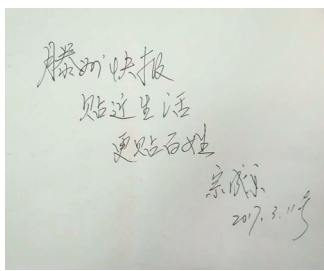 滕州快报
贴近生活
更贴百姓
宗成乐
2017.3.11号